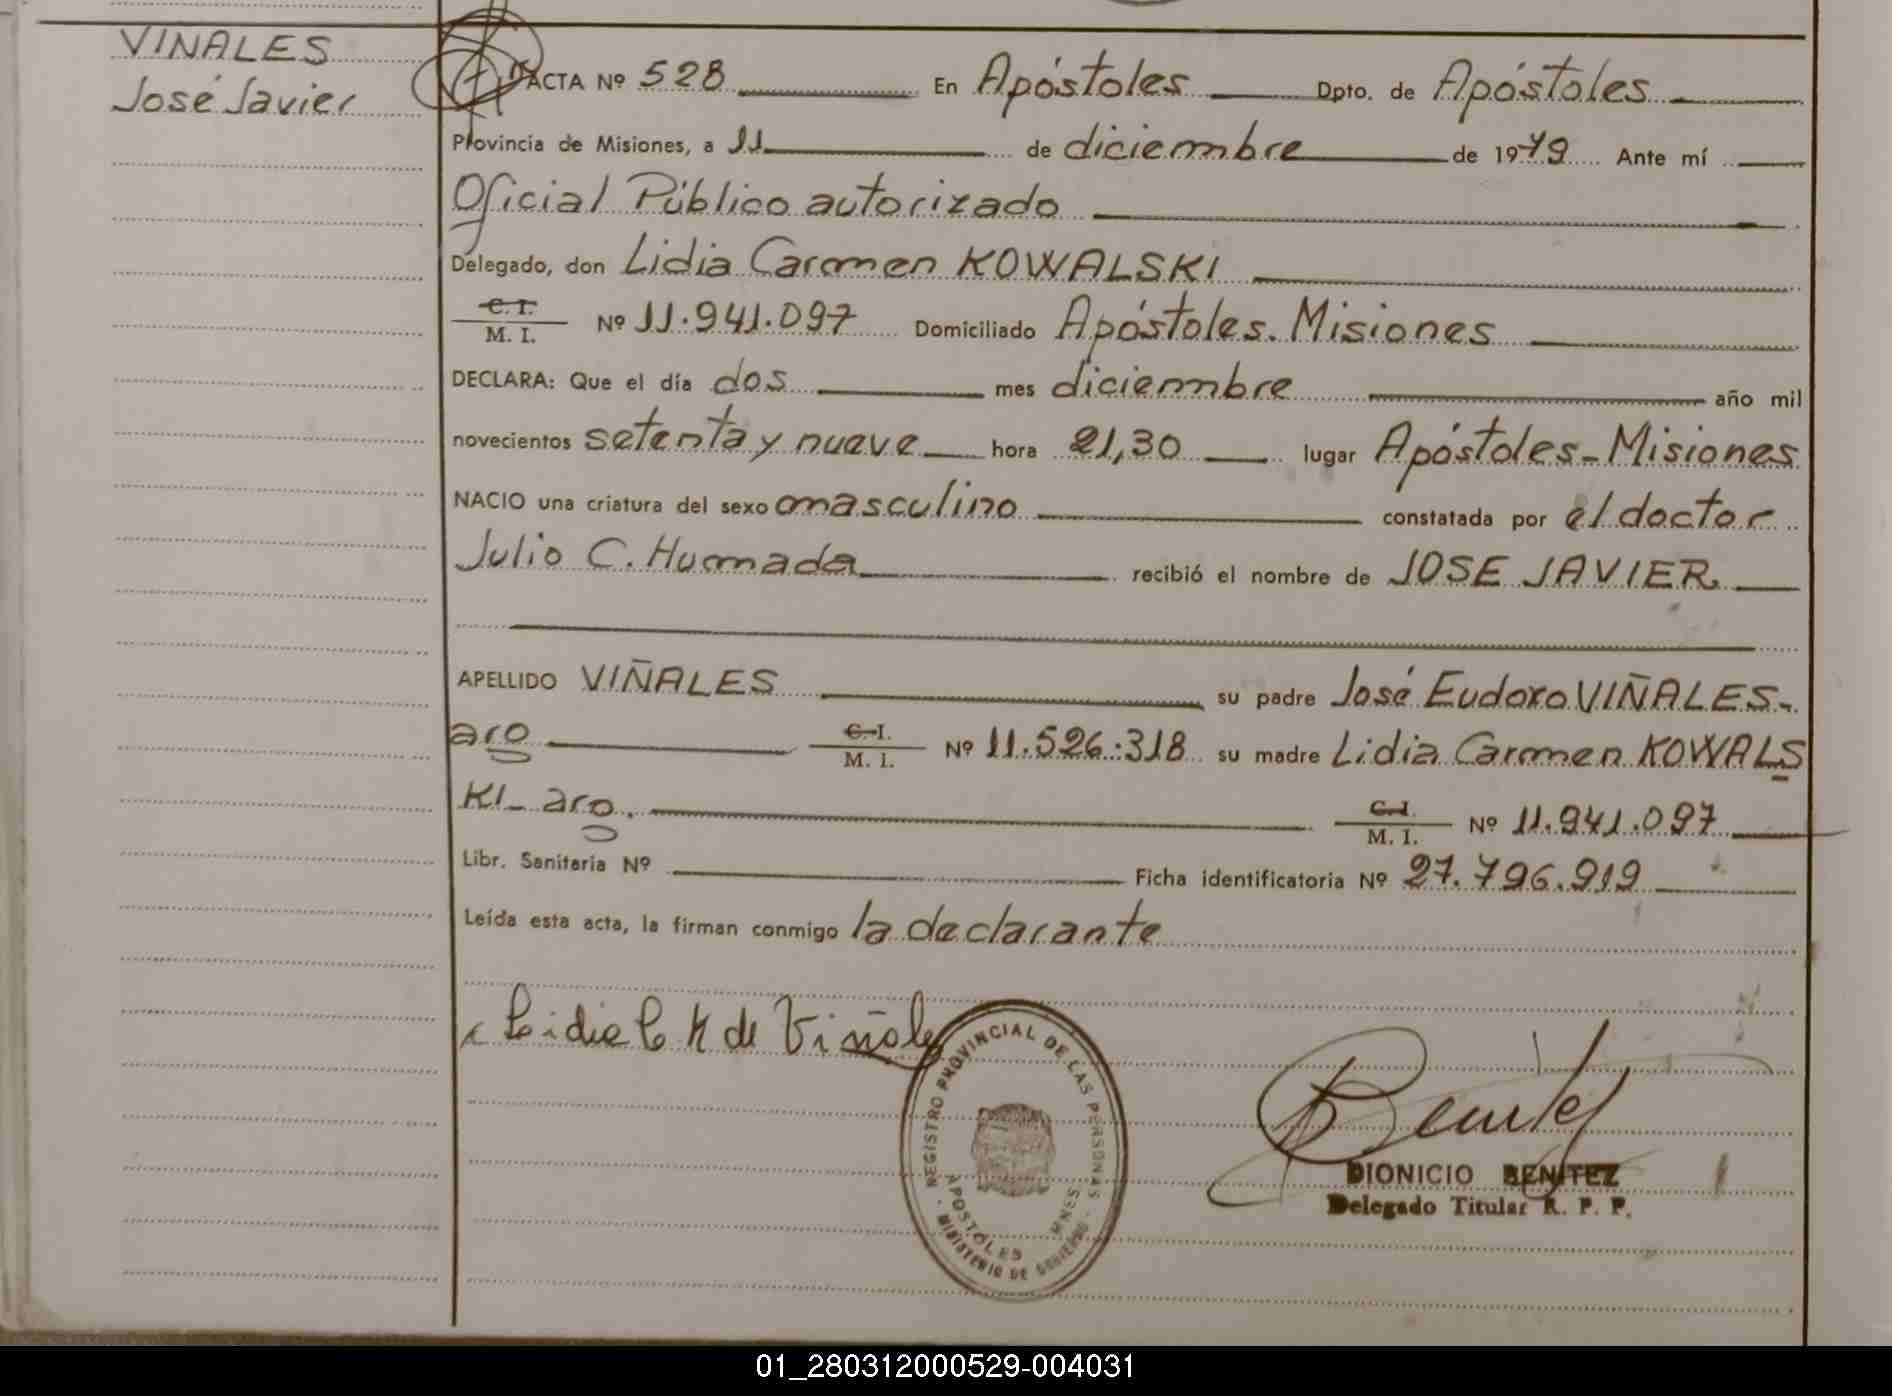 VIÑALES
José Javier
ACTA Nº 528 En Apóstoles Dpto. de Apóstoles
Provincia de Misiones, a 11 de diciembre de 1979 Ante mí
Oficial Público autorizado
Delegado, don Lidia Carmen KOWALSKI
C. I.
M. I. Nº 11.941.097 Domiciliado Apóstoles. Misiones
DECLARA: Que el día dos mes diciembre año mil
novecientos setenta y nueve hora 21,30 lugar Apóstoles - Misiones
NACIO una criatura del sexo masculino constatada por el doctor
Julio C. Humada recibió el nombre de JOSE JAVIER
APELLIDO VIÑALES su padre José Eudoxo VIÑALES -
aro C. I. M. I. Nº 11.526.318 su madre Lidia Carmen KOWALS
KI - aro. C. I. M. I. Nº 11.941.097
Libr. Sanitaria Nº Ficha identificatoria Nº 27.796.919
Leída esta acta, la firman conmigo la declarante
Lidia C K de Viñales
REGISTRO PROVINCIAL DE LAS PERSONAS
APOSTOLES MNES
MINISTERIO DE GOBIERNO
Benitez
DIONICIO BENITEZ
Delegado Titular R. P. P.
01_280312000529-004031